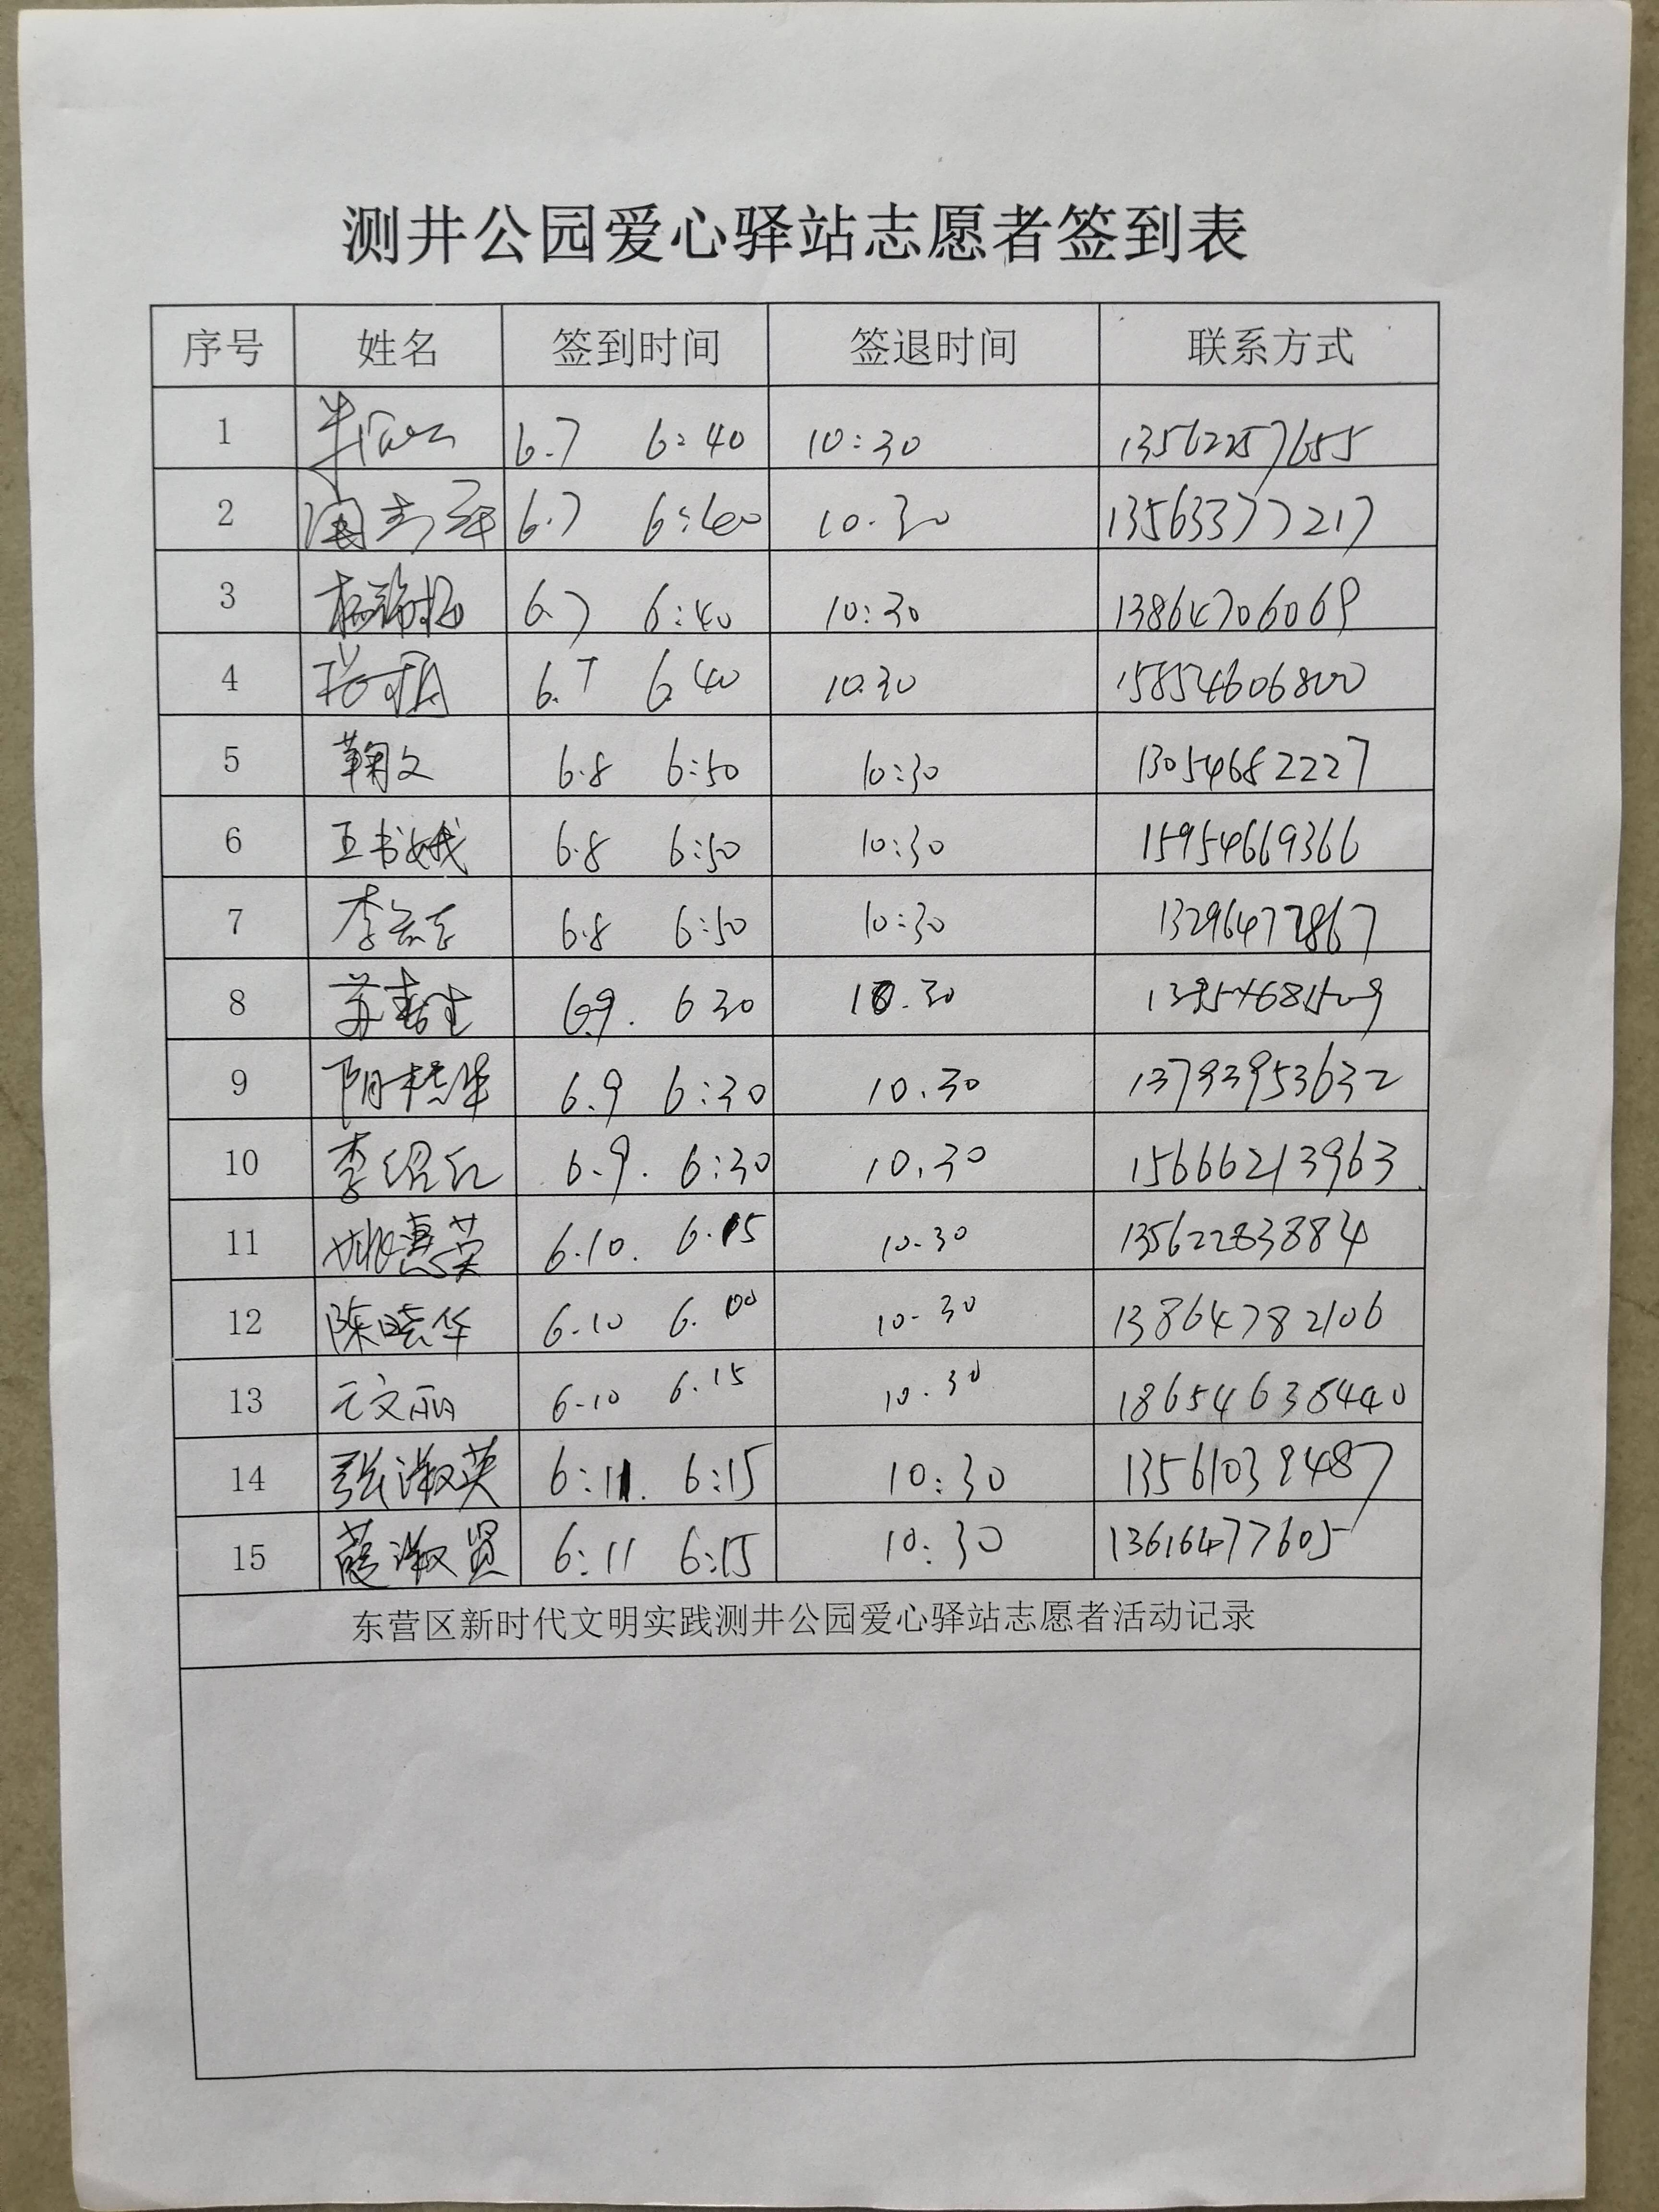 测井公园爱心驿站志愿者签到表
序号 姓名 签到时间 签退时间 联系方式
1 6.7 6:40 10:30 13562257655
2 6.7 6:40 10.30 13563377217
3 6.7 6:40 10:30 13864706069
4 6.7 6 40 10.30 15854606800
5 鞠文 6.8 6:50 10:30 13054682227
6 王书娥 6.8 6:50 10:30 15954669366
7 李 6.8 6:50 10:30
8 苏春生 6.9. 6 30 10.30
9 阴 6.9 6:30 10.30 13793953632
10 李绍红 6.9. 6:30 10.30 15666213963
11 姚惠英 6.10. 6.15 10.30 13562283884
12 陈晓华 6.10 6.00 10.30 13864782106
13 亓文丽 6.10 6.15 10.30 18654638440
14 张淑英 6:11. 6:15 10:30 13561039487
15 薛淑贤 6:11 6:15 10:30 13616477605
东营区新时代文明实践测井公园爱心驿站志愿者活动记录